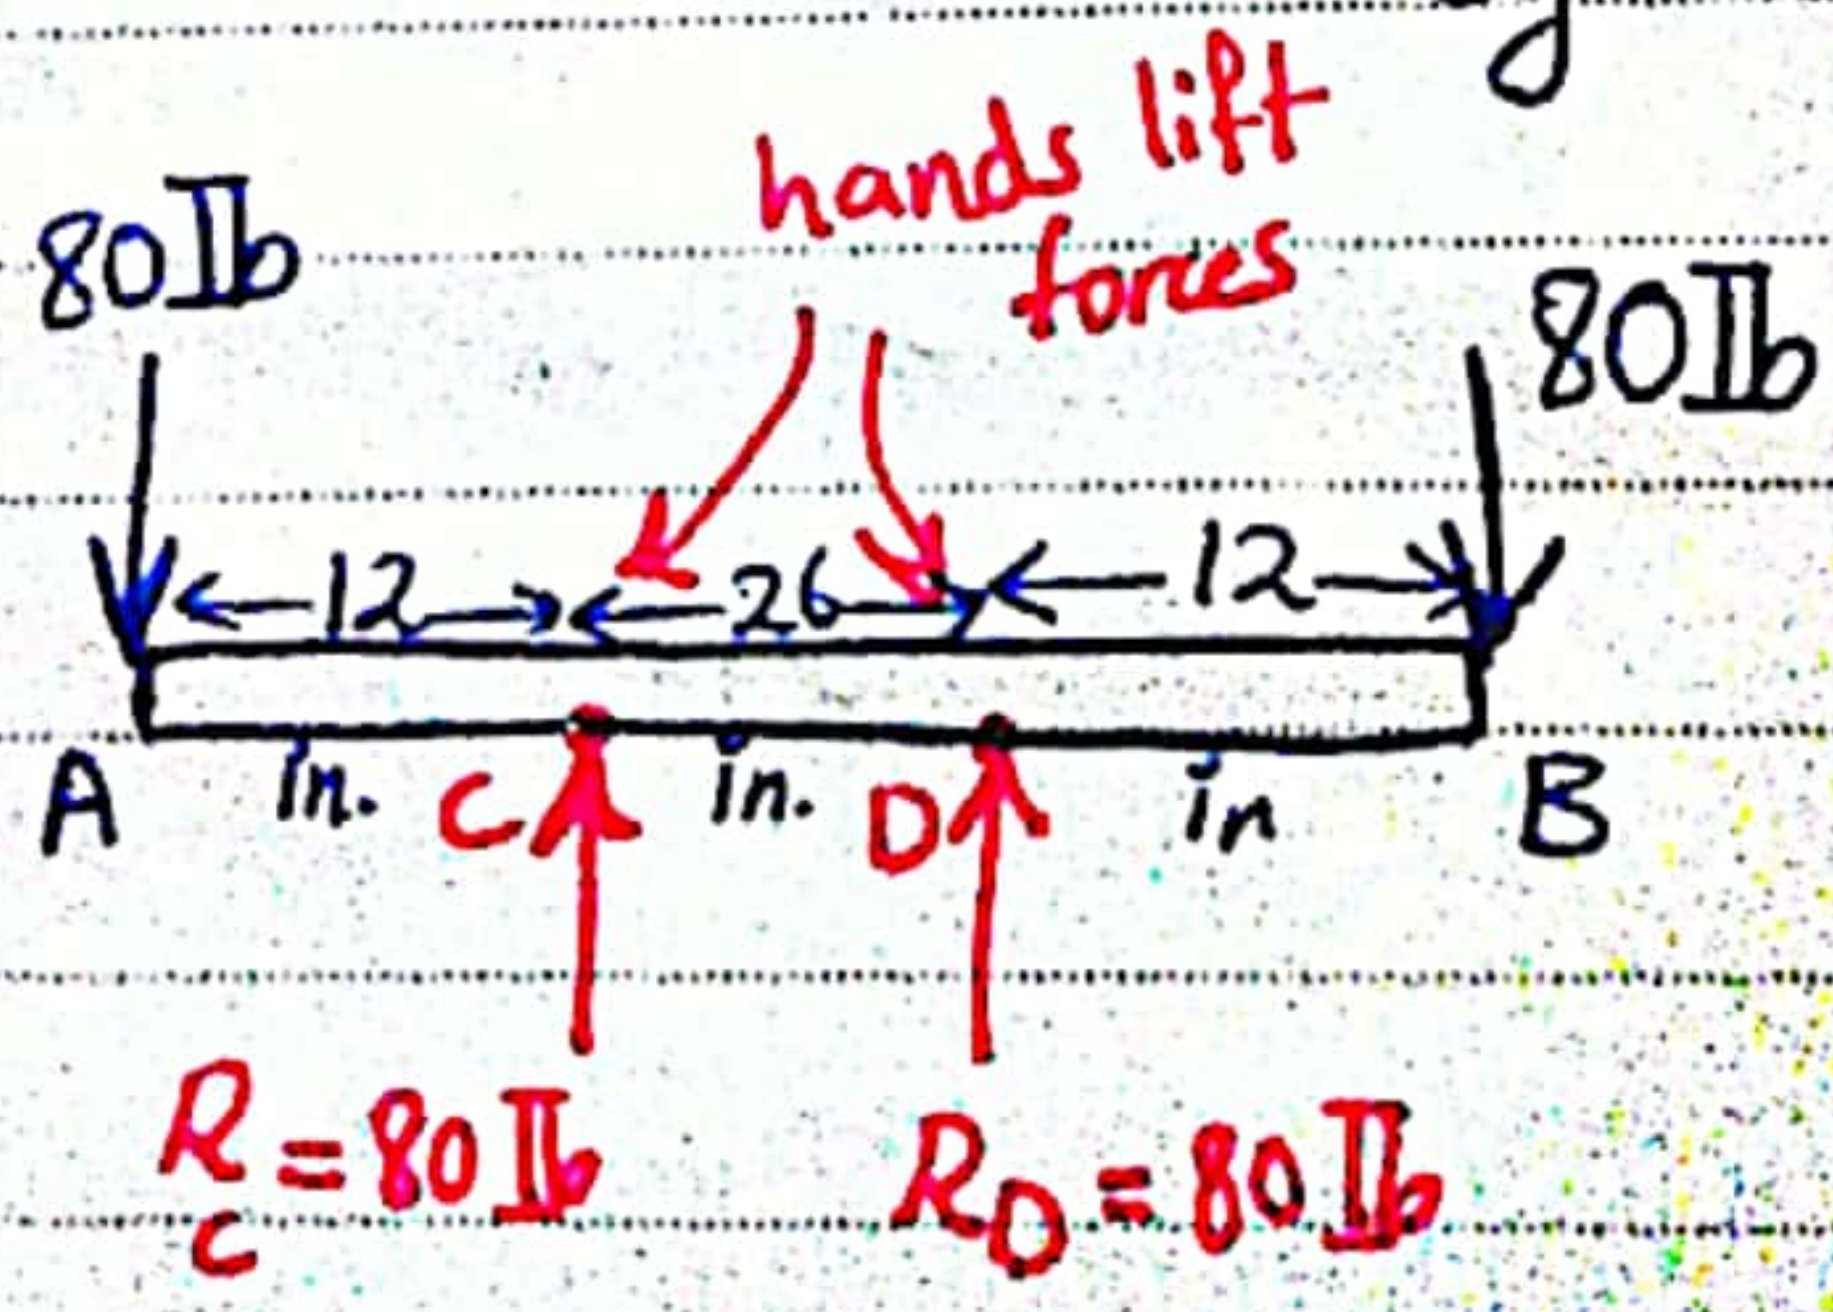 hands lift
forces
80 lb
80 lb
12 26 12
A in. C in. D in B
R_C = 80 lb R_D = 80 lb